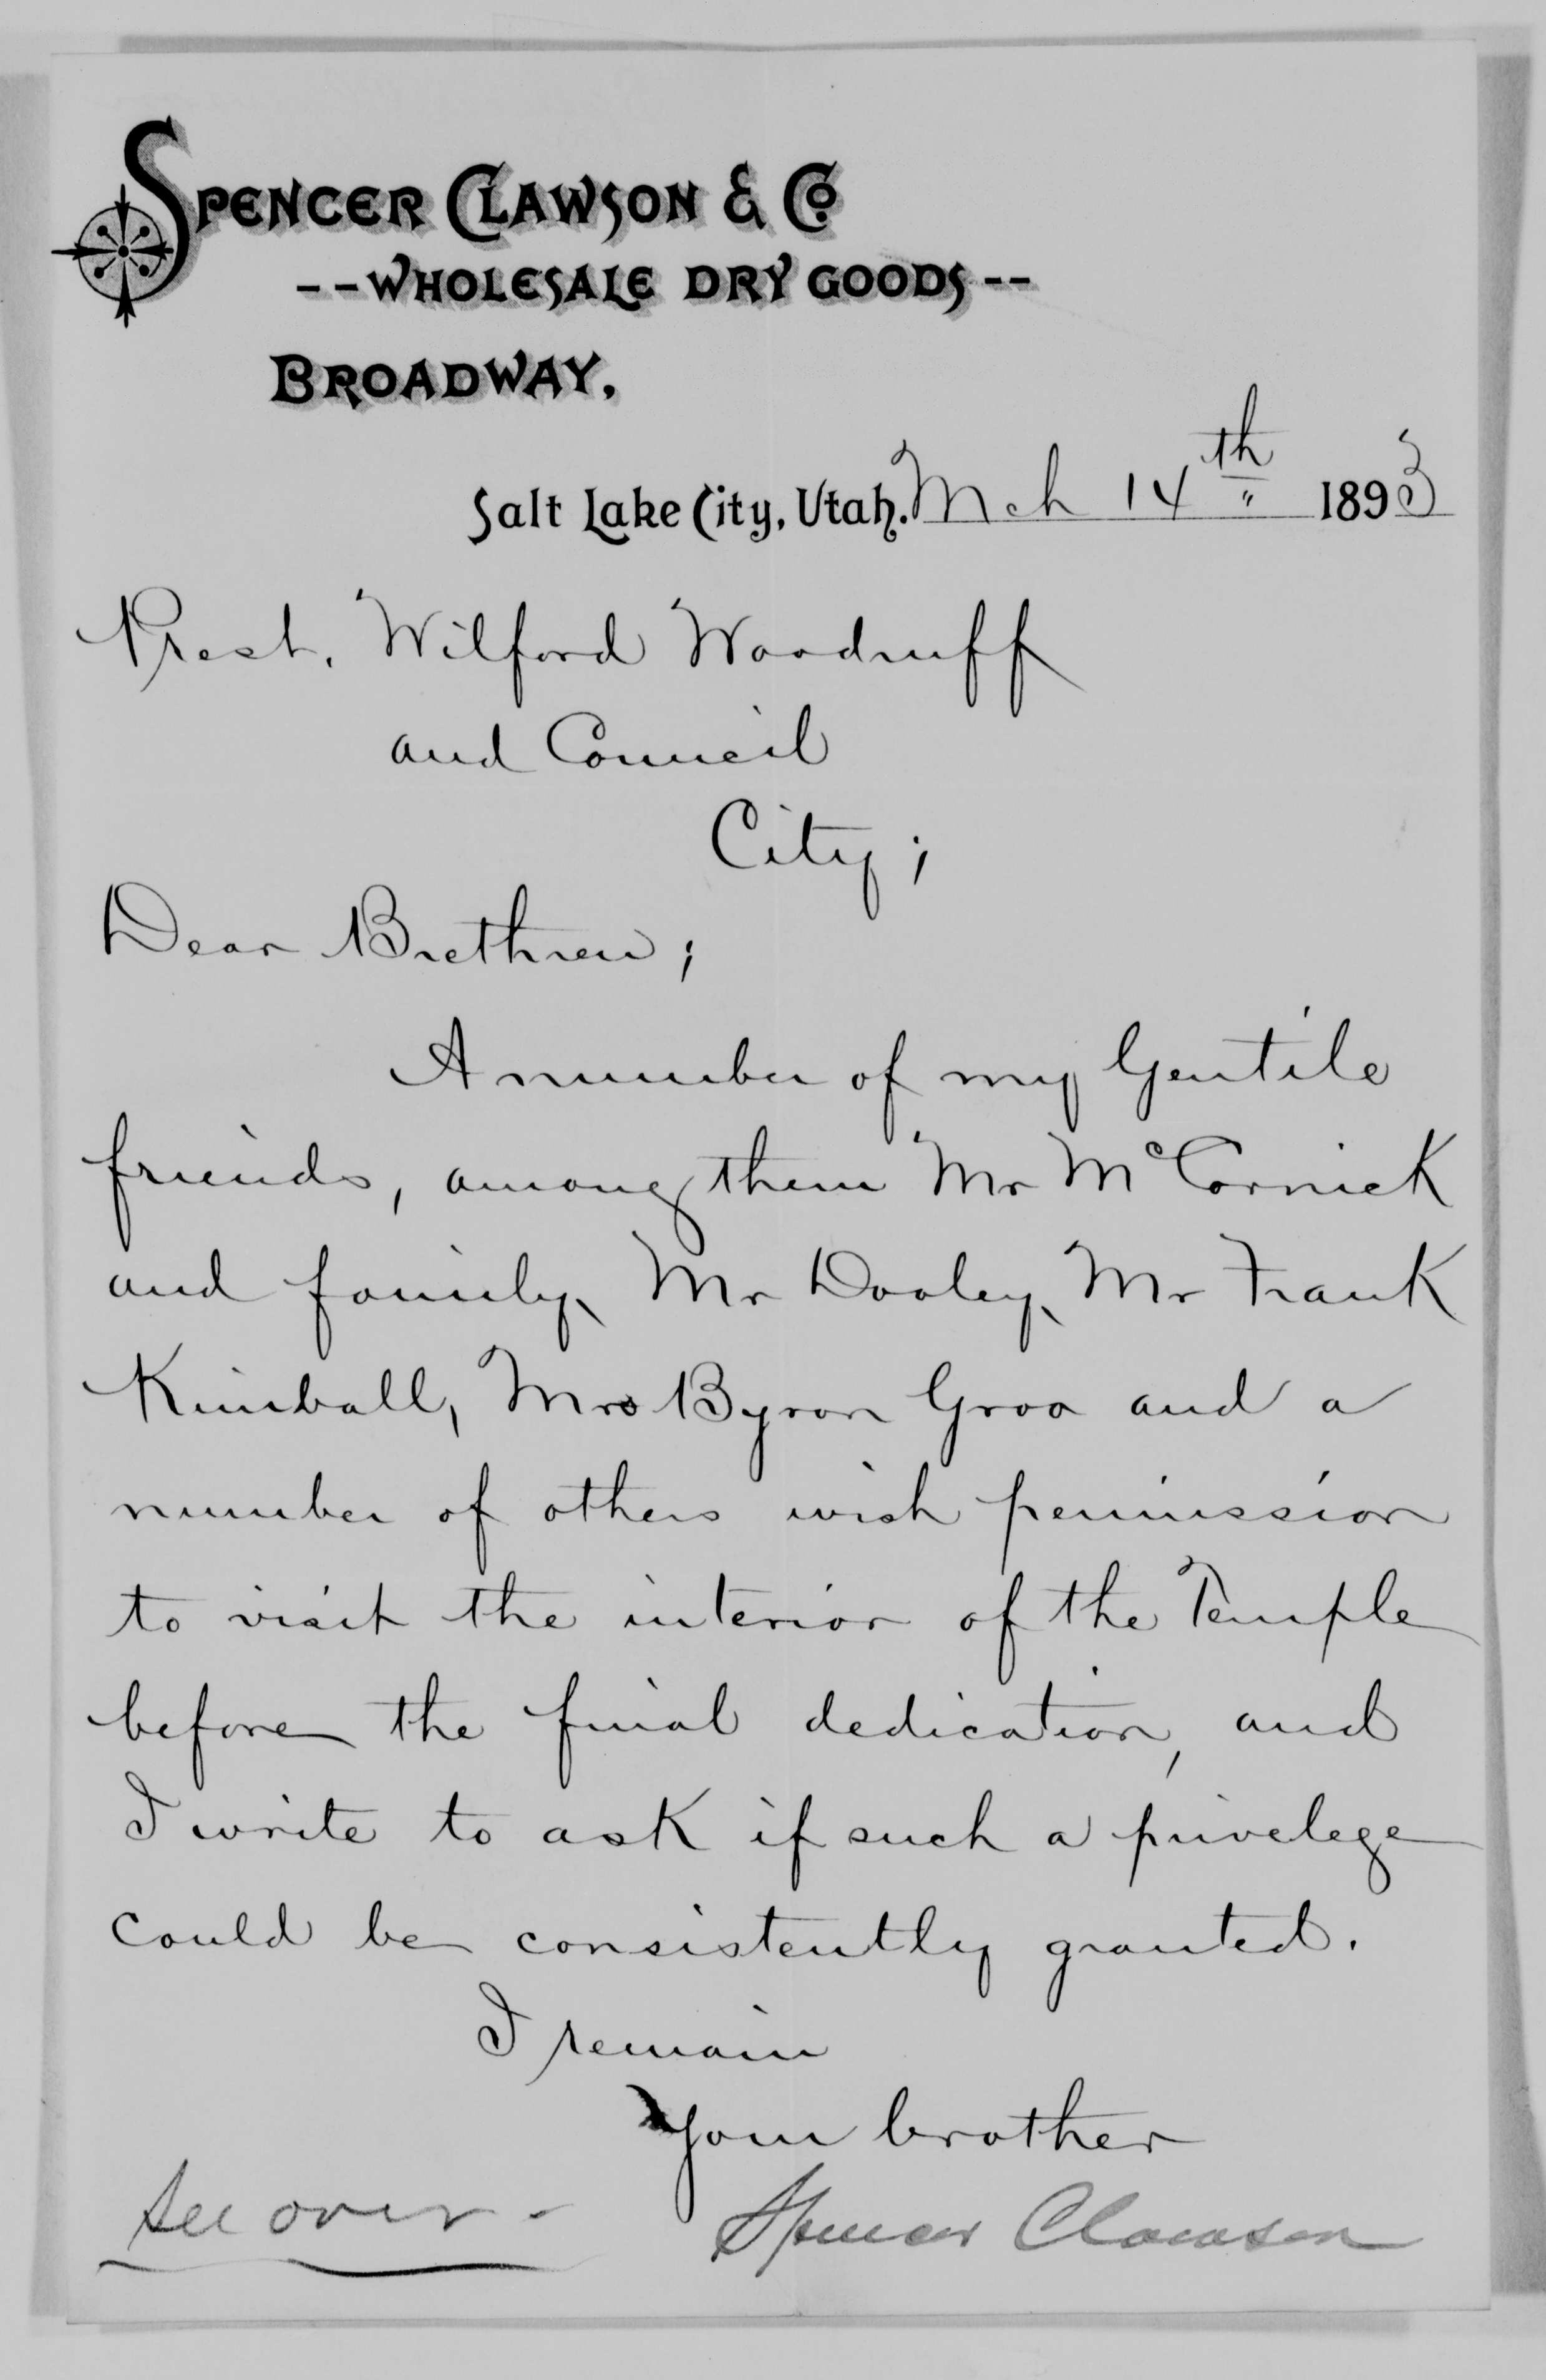 SPENCER CLAWSON & Co.
--WHOLESALE DRY GOODS--
BROADWAY.
Salt Lake City, Utah. Mch 14th 1893
Prest. Wilford Woodruff
and Council
City;
Dear Brethren;
A number of my Gentile
friends, among them Mr McCornick
and family, Mr Dooley, Mr Frank
Kimball, Mrs Byron Groo and a
number of others wish permission
to visit the interior of the Temple
before the final dedication, and
I write to ask if such a privelege
could be consistently granted.
I remain
Your brother
Spencer Clawson
See over -